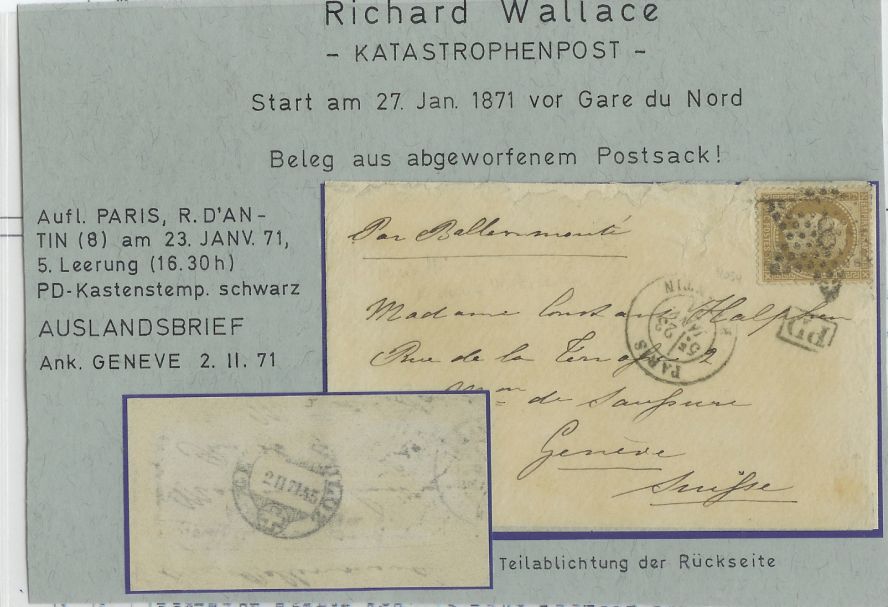 Richard Wallace
- KATASTROPHENPOST -
Start am 27. Jan. 1871 vor Gare du Nord
Beleg aus abgeworfenem Postsack!
Aufl. PARIS, R. D'AN-
TIN (8) am 23. JANV. 71,
5. Leerung (16.30h)
PD-Kastenstemp. schwarz
AUSLANDSBRIEF
Ank. GENEVE 2. II. 71
Par Ballon monté
Madame Constant Halphen
Rue de la 2
de Saussure
Genève
Suisse
PARIS
5E
23
JANV
PD
2 II 71
Teilablichtung der Rückseite